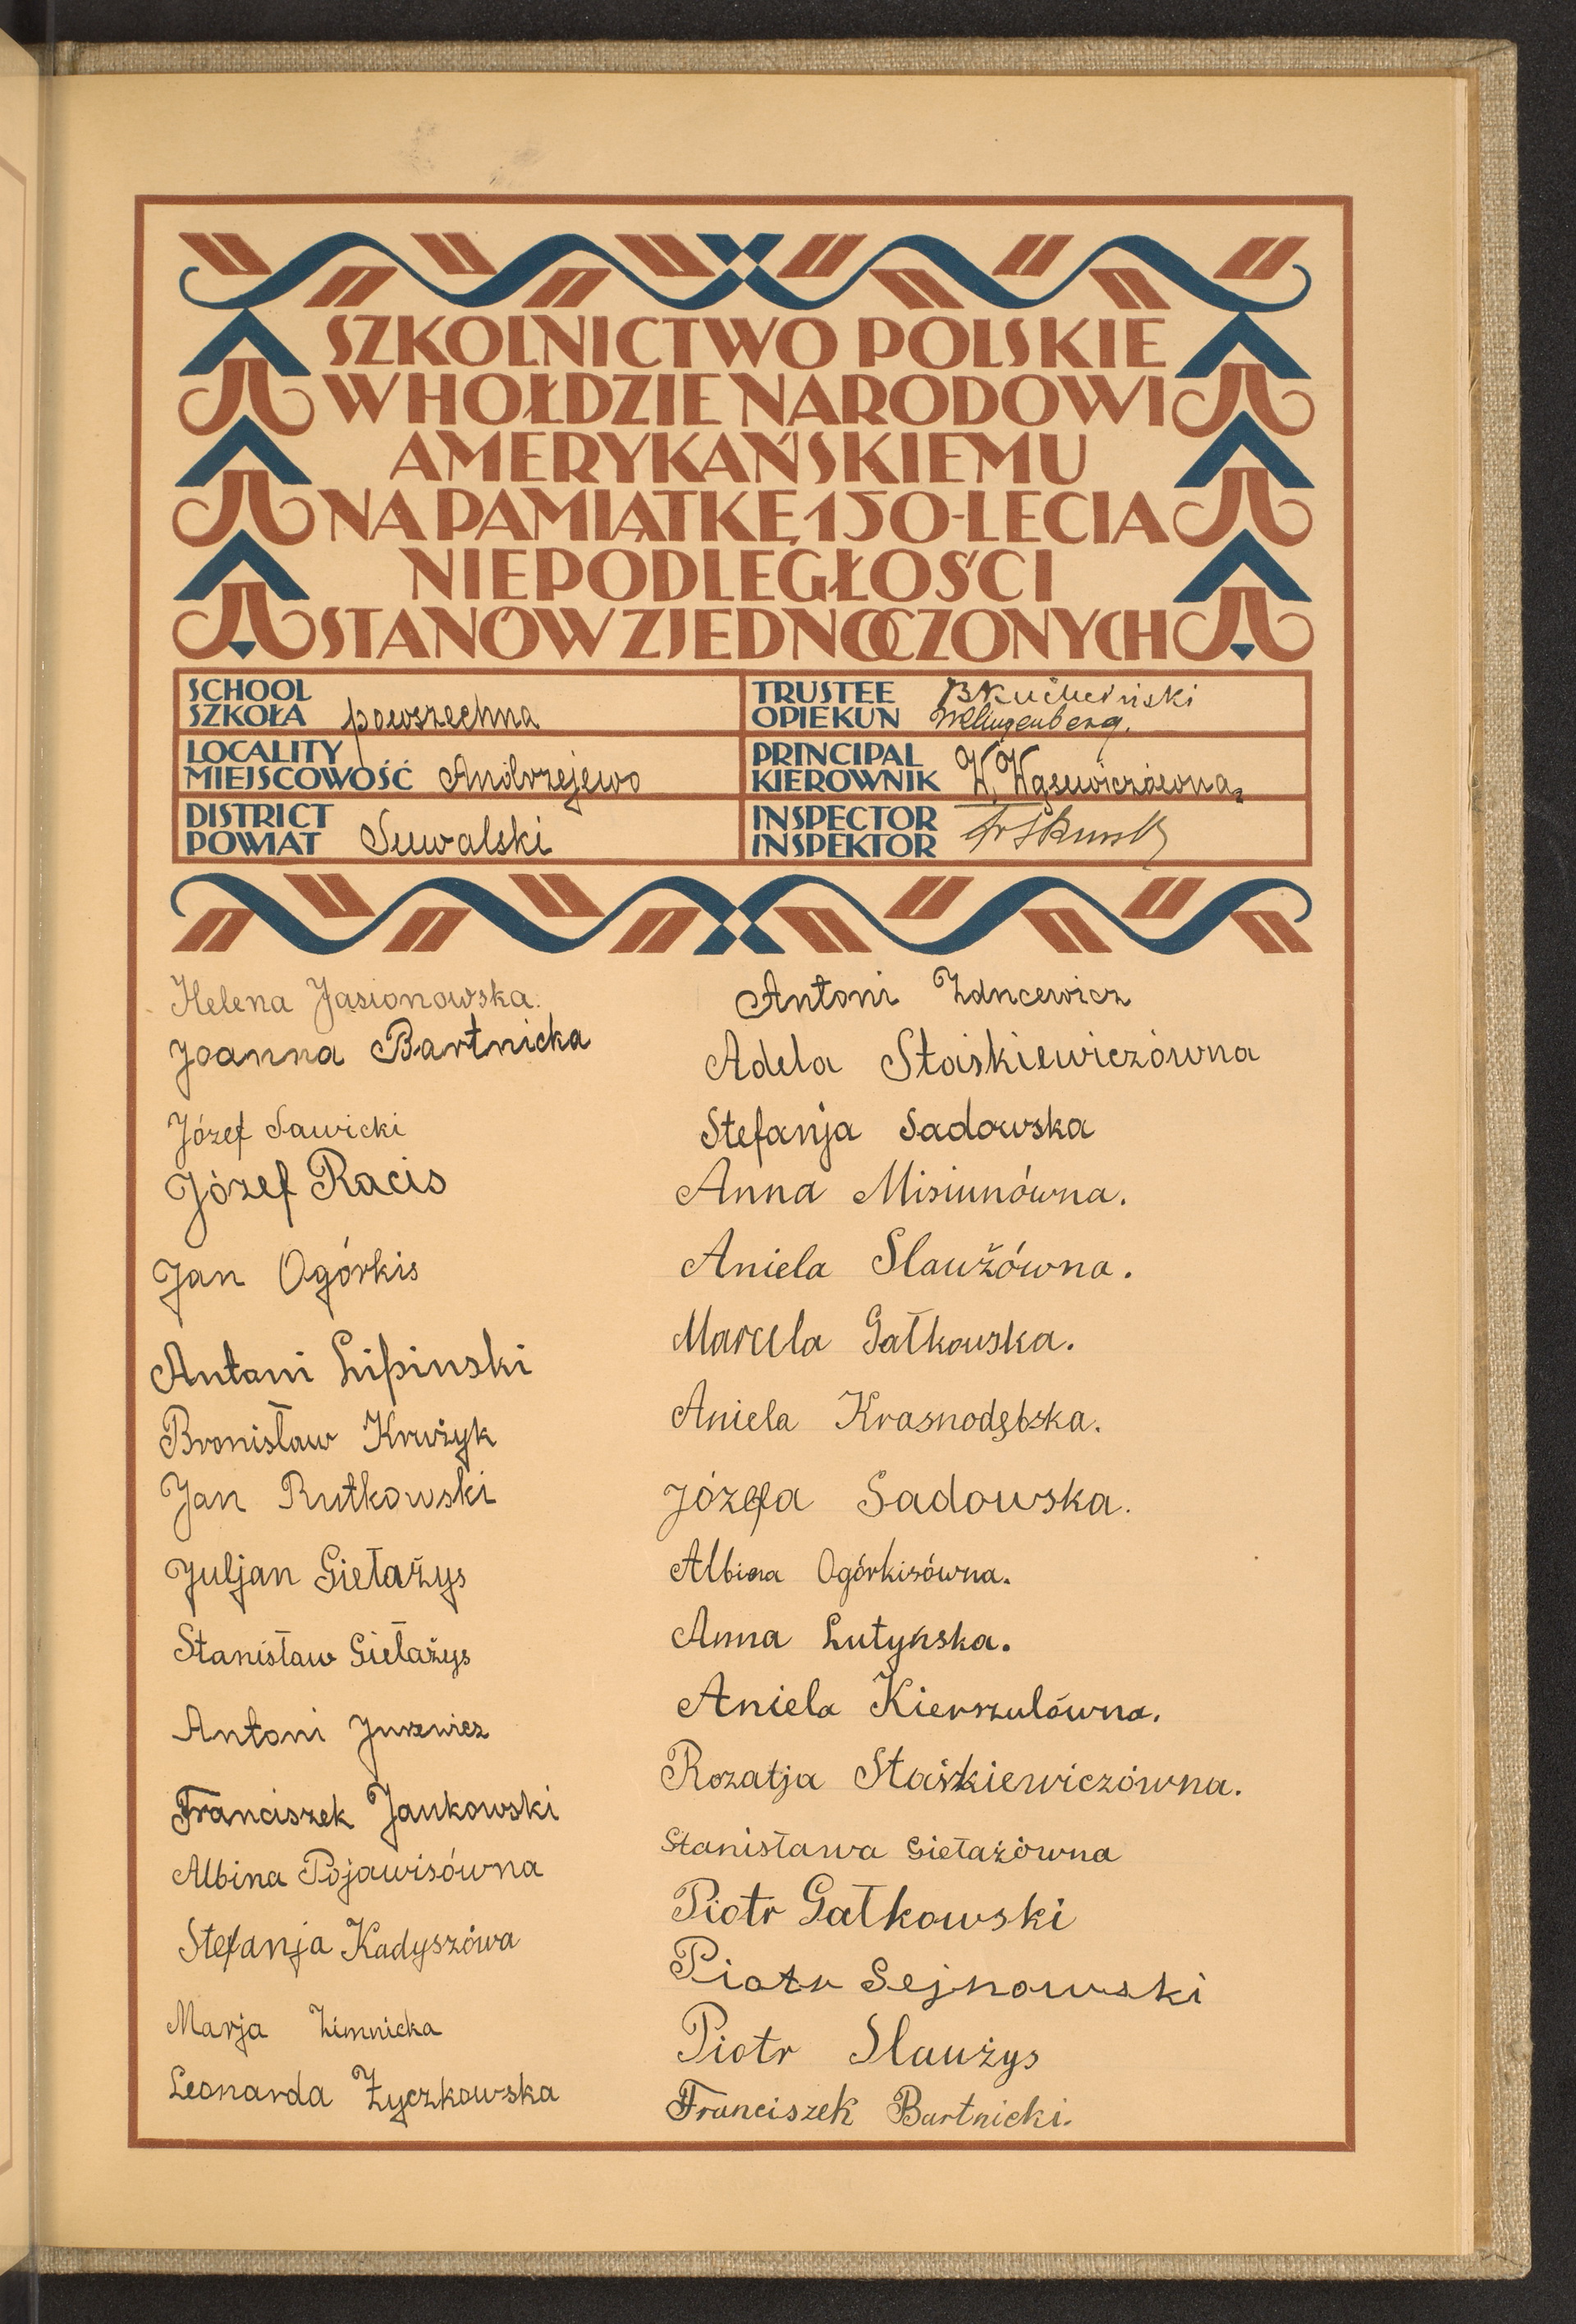 SZKOLNICTWO POLSKIE
W HOŁDZIE NARODOWI
AMERYKAŃSKIEMU
NA PAMIĄTKĘ 150-LECIA
NIEPODLEGŁOŚCI
STANÓW ZJEDNOCZONYCH
SCHOOL
SZKOŁA powszechna
LOCALITY
MIEJSCOWOŚĆ Andrzejewo
DISTRICT
POWIAT Suwalski
TRUSTEE
OPIEKUN
PRINCIPAL
KIEROWNIK W. Wąsewiczówna
INSPECTOR
INSPEKTOR
Helena Jasionowska.
Joanna Bartnicka
Józef Sawicki
Józef Racis
Jan Ogórkis
Antoni Lipinski
Bronisław Krużyk
Jan Rutkowski
Juljan Giełażys
Stanisław Giełażys
Antoni Jurewicz
Franciszek Jankowski
Albina Pojawisówna
Stefanja Kadyszówa
Marja Zimnicka
Leonarda Życzkowska
Antoni Zdncewicz
Adela Staskiewiczówna
Stefanja Sadowska
Anna Misiunówna.
Aniela Slaużówna.
Marcela Gałkowska.
Aniela Krasnodębska.
Józefa Sadowska.
Albina Ogórkisówna.
Anna Lutyńska.
Aniela Kierszulówna.
Rozalja Staśkiewiczówna.
Stanisława Giełażówna
Piotr Gałkowski
Piotr Sejnowski
Piotr Slaużys
Franciszek Bartnicki.